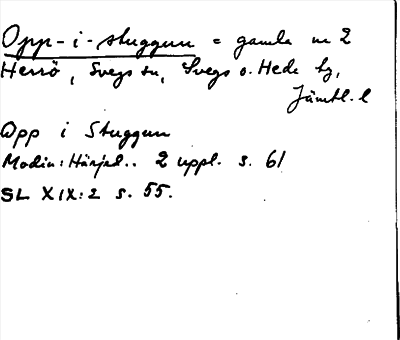 Opp-i-stuggun = gamla nr 2
Herrö, Svegs sn, Svegs o. Hede tg,
Jämtl. l
Opp i Stuggun
Modin: Härjed.. 2 uppl. s. 61
SL XIX:2 s. 55.